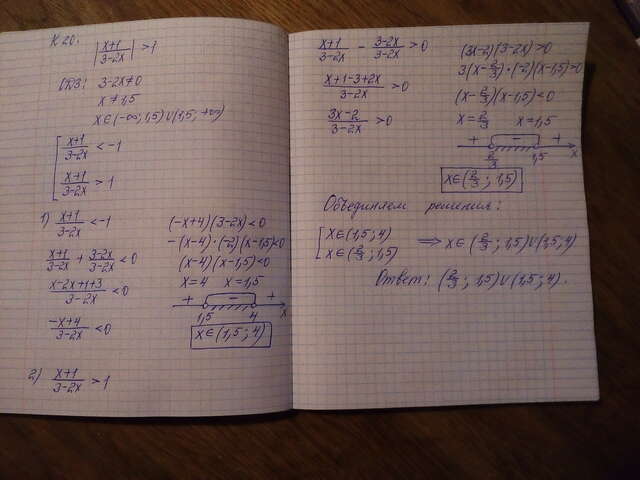 К 20.
|x+1/3-2x| > 1
ОДЗ: 3-2x≠0
x≠1,5
x∈(-∞;1,5)∪(1,5;+∞)
[ x+1/3-2x < -1
x+1/3-2x > 1
1) x+1/3-2x < -1
x+1/3-2x + 3-2x/3-2x < 0
x-2x+1+3/3-2x < 0
-x+4/3-2x < 0
(-x+4)(3-2x)<0
-(x-4)·(-2)(x-1,5)<0
(x-4)(x-1,5)<0
x=4 x=1,5
+ - +
1,5 4 x
x∈(1,5;4)
2) x+1/3-2x > 1
x+1/3-2x - 3-2x/3-2x > 0
x+1-3+2x/3-2x > 0
3x-2/3-2x > 0
(3x-2)(3-2x)>0
3(x-2/3)·(-2)(x-1,5)>0
(x-2/3)(x-1,5)<0
x=2/3 x=1,5
+ - +
2/3 1,5 x
x∈(2/3;1,5)
Объединяем решения:
[ x∈(1,5;4)
x∈(2/3;1,5) ⟹ x∈(2/3;1,5)∪(1,5;4)
Ответ: (2/3;1,5)∪(1,5;4).